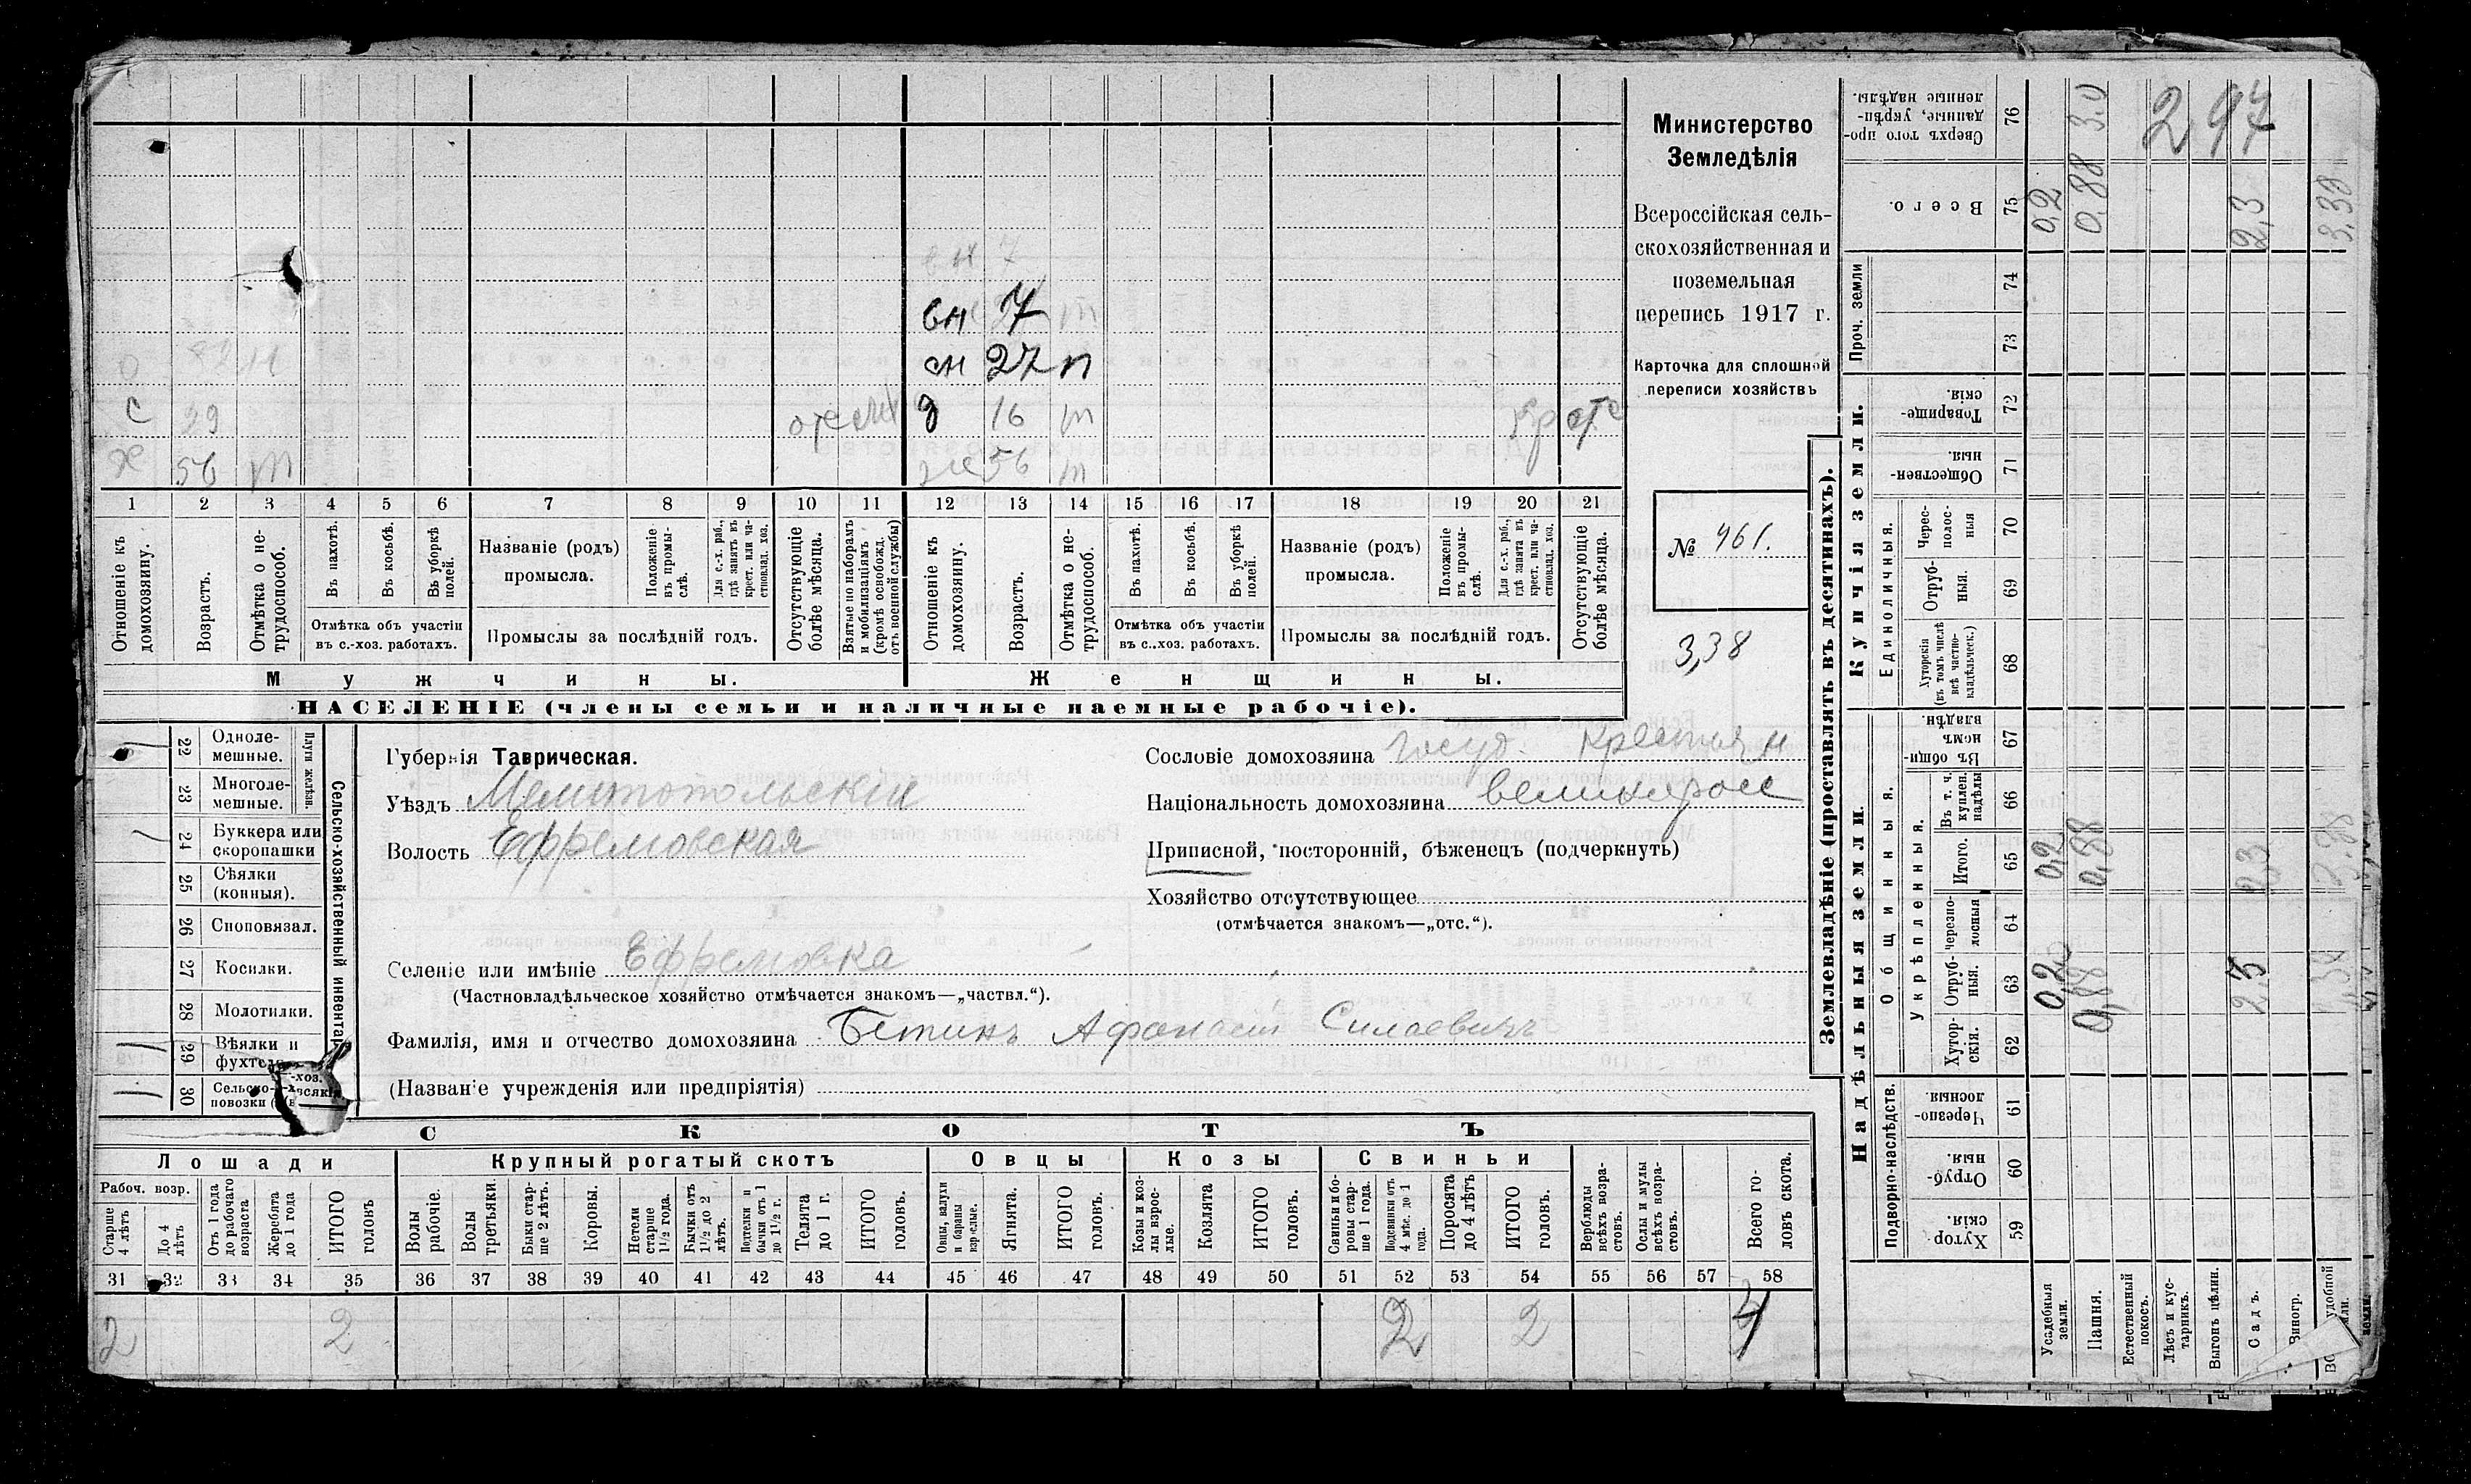 Министерство
Земледѣлія
Всероссійская сель-
скохозяйственная и
поземельная
перепись 1917 г.
Карточка для сплошной
переписи хозяйствъ
№ 461.
3,38
вн 7
вн 7 т
сн 27 п
О
С 29
д 16 т
Х 56 т
ж 56 т
1 2 3 4 5 6 7 8 9 10 11 12 13 14 15 16 17 18 19 20 21
Отношеніе къ домохозяину.
Возрастъ.
Отмѣтка о не-трудоспособ.
Въ пахотѣ.
Въ косьбѣ.
Въ уборкѣ полей.
Отмѣтка объ участіи
въ с.-хоз. работахъ.
Названіе (родъ)
промысла.
Положеніе въ промы-слѣ.
Для с.-х. раб., гдѣ занятъ въ крест. или ча-стновлад. хоз.
Промыслы за послѣдній годъ.
Отсутствующіе болѣе мѣсяца.
Взятые по наборамъ и мобилизаціямъ (кромѣ освобожд. отъ военной службы)
Отношеніе къ домохозяину.
Возрастъ.
Отмѣтка о не-трудоспособ.
Въ пахотѣ.
Въ косьбѣ.
Въ уборкѣ полей.
Отмѣтка объ участіи
въ с.-хоз. работахъ.
Названіе (родъ)
промысла.
Положеніе въ промы-слѣ.
Для с.-х. раб., гдѣ занята въ крест. или ча-стновлад. хоз.
Промыслы за послѣдній годъ.
Отсутствующіе болѣе мѣсяца.
Мужчины.
Женщины.
НАСЕЛЕНІЕ (члены семьи и наличные наемные рабочіе).
Сельско-хозяйственный инвентарь
Плуги желѣзн.
22 Одноле-мешные.
23 Многоле-мешные.
24 Буккера или скоропашки
25 Сѣялки (конныя).
26 Сноповязал.
27 Косилки.
28 Молотилки.
29 Вѣялки и
30 Сельско-
повозки
Губернія Таврическая.
Уѣздъ Мелитопольскій
Волость Ефремовская
Селеніе или имѣніе Ефремовка
(Частновладѣльческое хозяйство отмѣчается знакомъ—„частвл.“).
Фамилія, имя и отчество домохозяина Бетинъ Афонасій Силаевичъ
(Названіе учрежденія или предпріятія)
Сословіе домохозяина Госуд. Крестьян
Національность домохозяина великоросс
Приписной, посторонній, бѣженецъ (подчеркнуть)
Хозяйство отсутствующее
(отмѣчается знакомъ—„отс.“).
СКОТЪ
Лошади
Рабоч. возр.
Старше 4 лѣтъ
До 4 лѣтъ
Отъ 1 года до рабочаго возраста
Жеребята до 1 года
ИТОГО головъ
Крупный рогатый скотъ
Волы рабочіе.
Волы третьяки.
Быки стар-ше 2 лѣтъ.
Коровы.
Нетели старше 1½ года.
Бычки отъ 1½ до 2 лѣтъ.
Подтелки и бычки отъ 1 до 1½ г.
Телята до 1 г.
ИТОГО головъ.
Овцы
Овцы, валухи и бараны взрослые.
Ягнята.
ИТОГО головъ.
Козы
Козы и коз-лы взрос-лые.
Козлята
ИТОГО головъ.
Свиньи
Свиньи и бо-ровы стар-ше 1 года.
Подсвинки отъ 4 мѣс. до 1 года.
Поросята до 4 лѣтъ
ИТОГО головъ.
Верблюды всѣхъ возра-стовъ.
Ослы и мулы всѣхъ возра-стовъ.
Всего го-ловъ скота.
31 32 33 34 35 36 37 38 39 40 41 42 43 44 45 46 47 48 49 50 51 52 53 54 55 56 57 58
2 2 2 2 4
Землевладѣніе (проставлять въ десятинахъ).
Надѣльныя земли.
Купчія земли.
Проч. земли
Подворно-наслѣдств.
Общинныя.
Укрѣпленныя.
Единоличныя.
59 Хутор-скія
60 Отруб-ныя.
61 Черезпо-лосныя.
62 Хутор-скія.
63 Отруб-ныя.
64 черезпо-лосныя
65 Итого.
66 Въ т. ч. куплен. надѣлы
67 Въ общи-номъ владѣн.
68 Хуторскія (въ томъ числѣ всѣ частно-владѣльческ.)
69 Отруб-ныя.
70 Черес-полос-ныя
71 Обществен-ныя.
72 Товарище-скія.
73
74
75 Всего.
76 Сверхъ того про-данные, укрѣп-ленные надѣлы.
Усадебныя земли.
Пашня.
Естественный покосъ.
Лѣсъ и кус-тарникъ.
Выгонъ цѣлин.
Садъ.
Виногр.
удобной
0,2 0,2 0,2
0,88 0,88 0,88 3.0
2,3 2,3 2,3
3,38
297